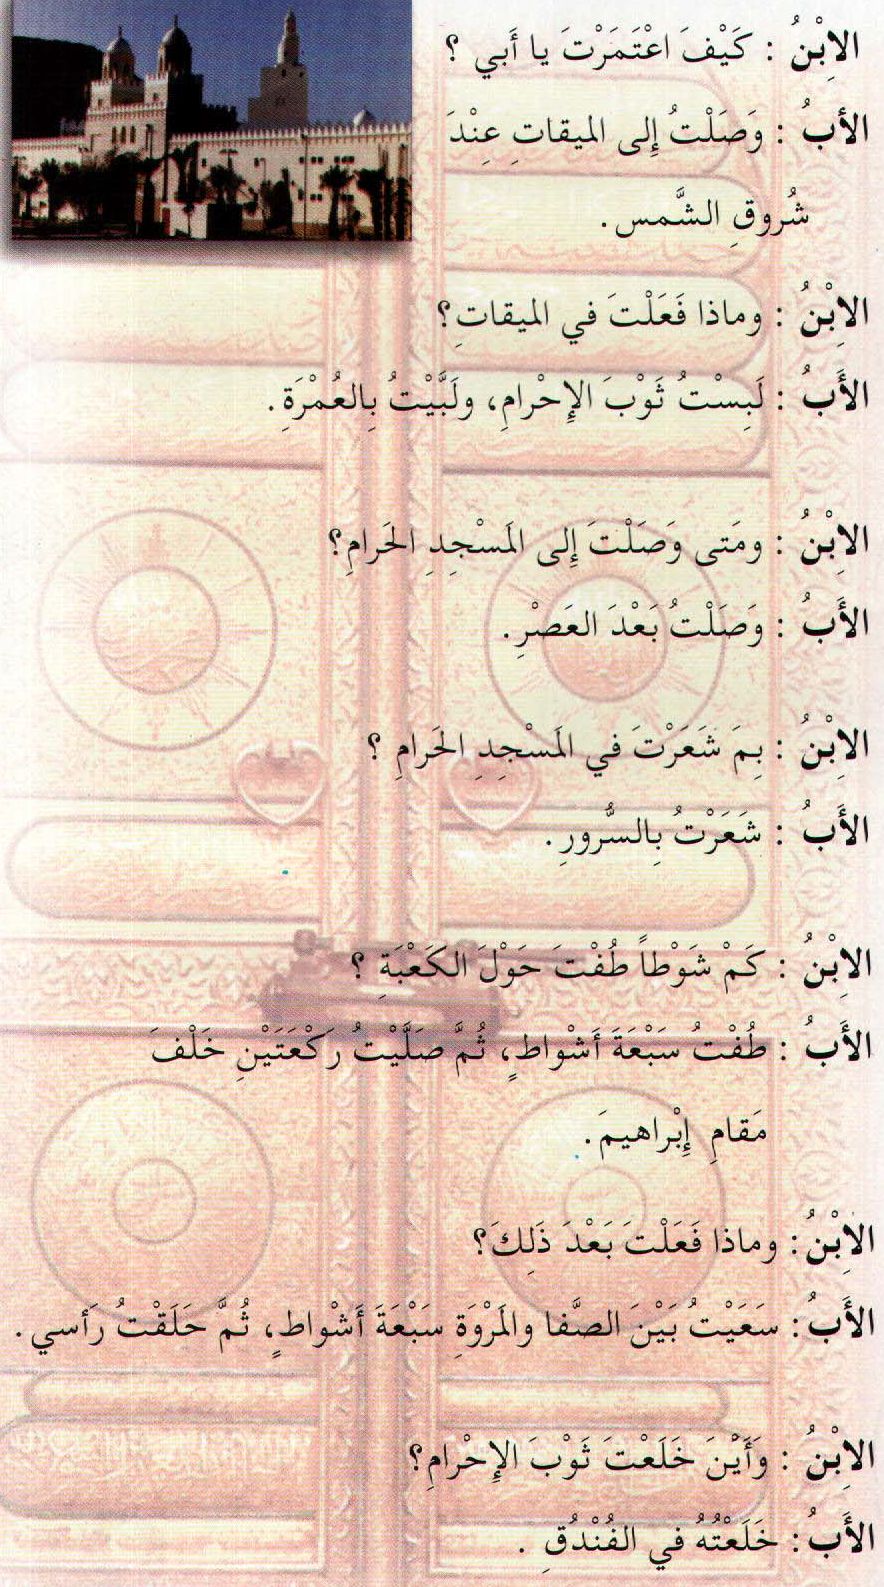 الاِبْنُ : كَيْفَ اعْتَمَرْتَ يا أَبي ؟
الأَبُ : وَصَلْتُ إِلى الميقاتِ عِنْدَ
شُروقِ الشَّمس .
الاِبْنُ : وماذا فَعَلْتَ في الميقاتِ؟
الأَبُ : لَبِسْتُ ثَوْبَ الإِحْرامِ، ولَبَّيْتُ بِالعُمْرَةِ .
الاِبْنُ : ومَتى وَصَلْتَ إِلى المَسْجِدِ الحَرامِ؟
الأَبُ : وَصَلْتُ بَعْدَ العَصْرِ .
الاِبْنُ : بِمَ شَعَرْتَ في المَسْجِدِ الحَرامِ ؟
الأَبُ : شَعَرْتُ بِالسُّرورِ .
الاِبْنُ : كَمْ شَوْطاً طُفْتَ حَوْلَ الكَعْبَةِ ؟
الأَبُ : طُفْتُ سَبْعَةَ أَشْواطٍ، ثُمَّ صَلَّيْتُ رَكْعَتَيْنِ خَلْفَ
مَقامِ إِبْراهيمَ .
الاِبْنُ : وماذا فَعَلْتَ بَعْدَ ذَلِكَ؟
الأَبُ : سَعَيْتُ بَيْنَ الصَّفا والمَرْوَةِ سَبْعَةَ أَشْواطٍ، ثُمَّ حَلَقْتُ رَأسي .
الاِبْنُ : وَأَيْنَ خَلَعْتَ ثَوْبَ الإِحْرامِ؟
الأَبُ : خَلَعْتُهُ في الفُنْدُقِ .